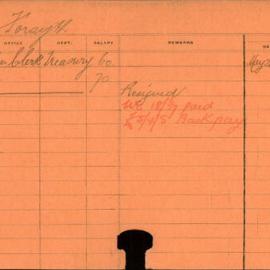 Forsyth
OFFICE DEPT. SALARY REMARKS
Clerk Treasury 60
70
Resigned
WE 18/9 paid
£5/4/5 Back pay